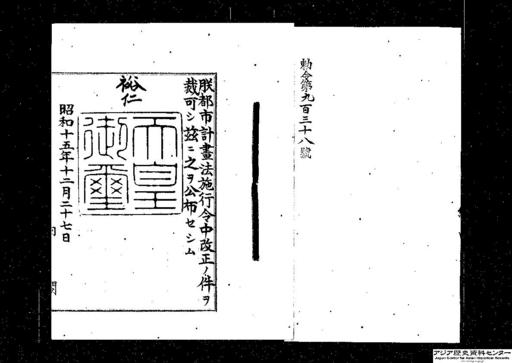 勅令第九百三十八號
朕都市計畫法施行令中改正ノ件ヲ
裁可シ玆ニ之ヲ公布セシム
裕仁
天皇
御璽
昭和十五年十二月二十七日
アジア歴史資料センター
Japan Center for Asian Historical Records